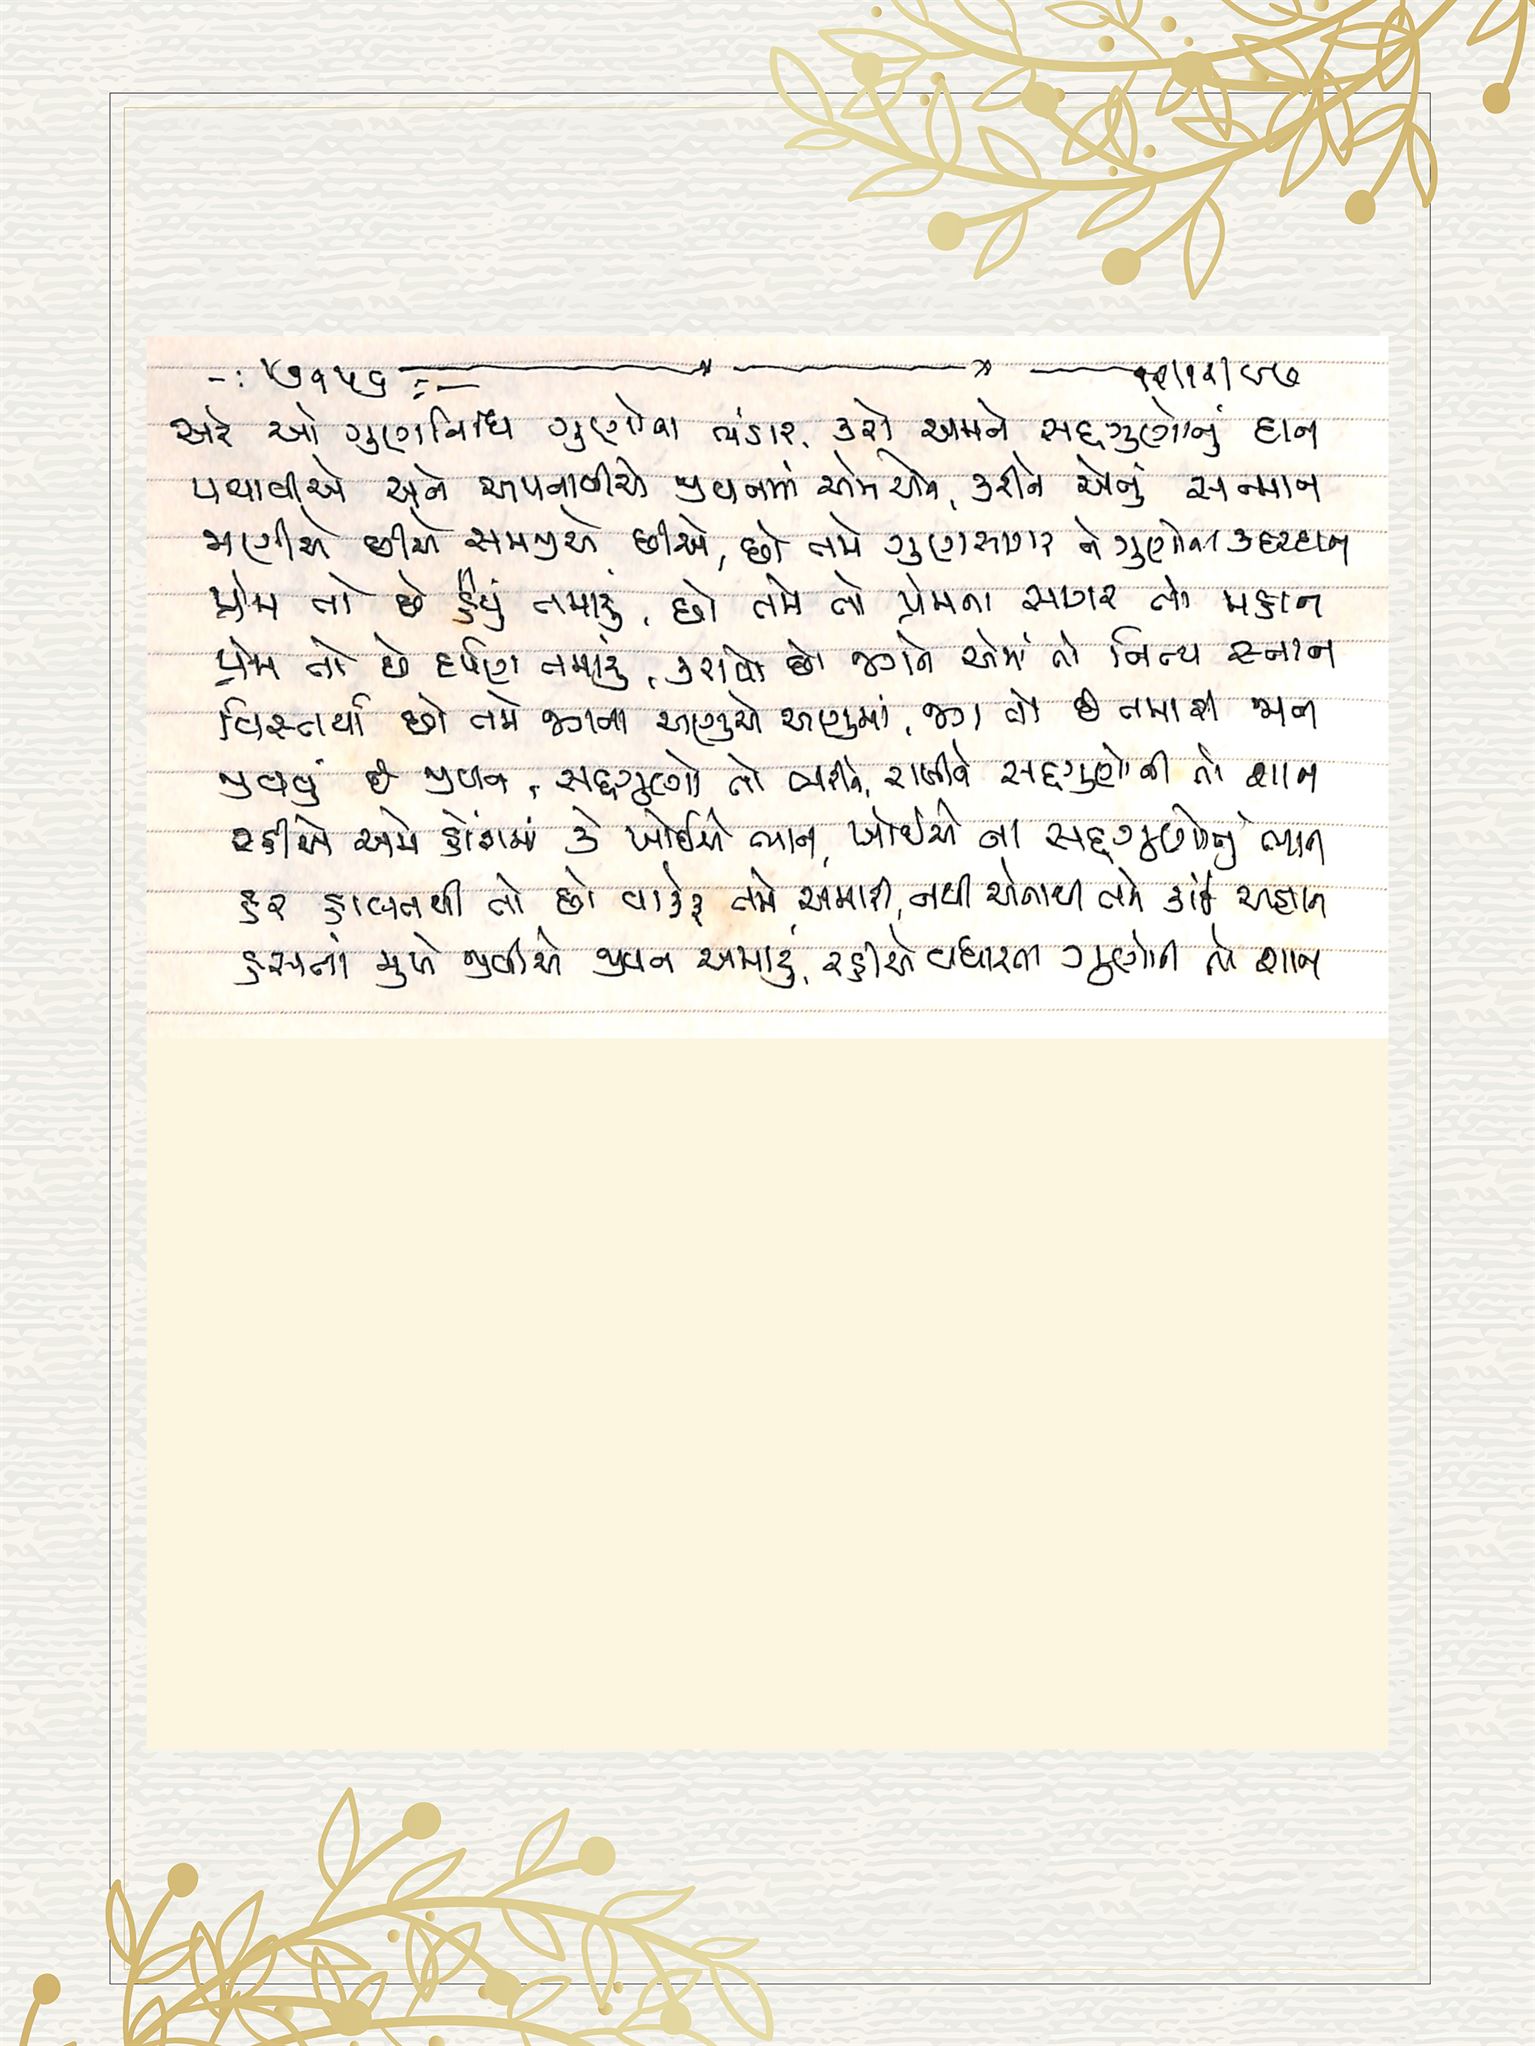 -: ૭૧૫૬ :-  ૧૨/૧૨/૯૭
અરે ઓ ગુણનિધિ ગુણોના ભંડાર, કરો અમને સદ્દગુણોનું દાન
પચાવીએ અને અપનાવીએ જીવનમાં એમ એને, કરીને એનું સન્માન
જાણીએ છીએ સમજીએ છીએ, છો તમે ગુણસાગર ને ગુણોના કદરદાન
પ્રેમ તો છે હૈયું તમારું, છો તમે તો પ્રેમના સાગર તો મહાન
પ્રેમ તો છે દર્પણ તમારું, કરાવો છો જગને એમાં તો નિત્ય સ્નાન
વિસ્તર્યા છો તમે જગના અણુએ અણુમાં, જગ તો છે તમારી જાન
જીવવું છે જીવન, સદ્દગુણો તો ભરીને, રાખીને સદ્દગુણોની તો શાન
રહીએ અમે હોંશમાં કે ખોઈએ ભાન, ખોઈએ ના સદ્દગુણોનું ભાન
હર હાલતથી તો છો વાકેફ તમે અમારી, નથી એનાથી તમે કાંઈ અજ્ઞાન
હસતાં મુખે જીવીએ જીવન અમારું, રહીએ વધારતા ગુણોની તો શાન